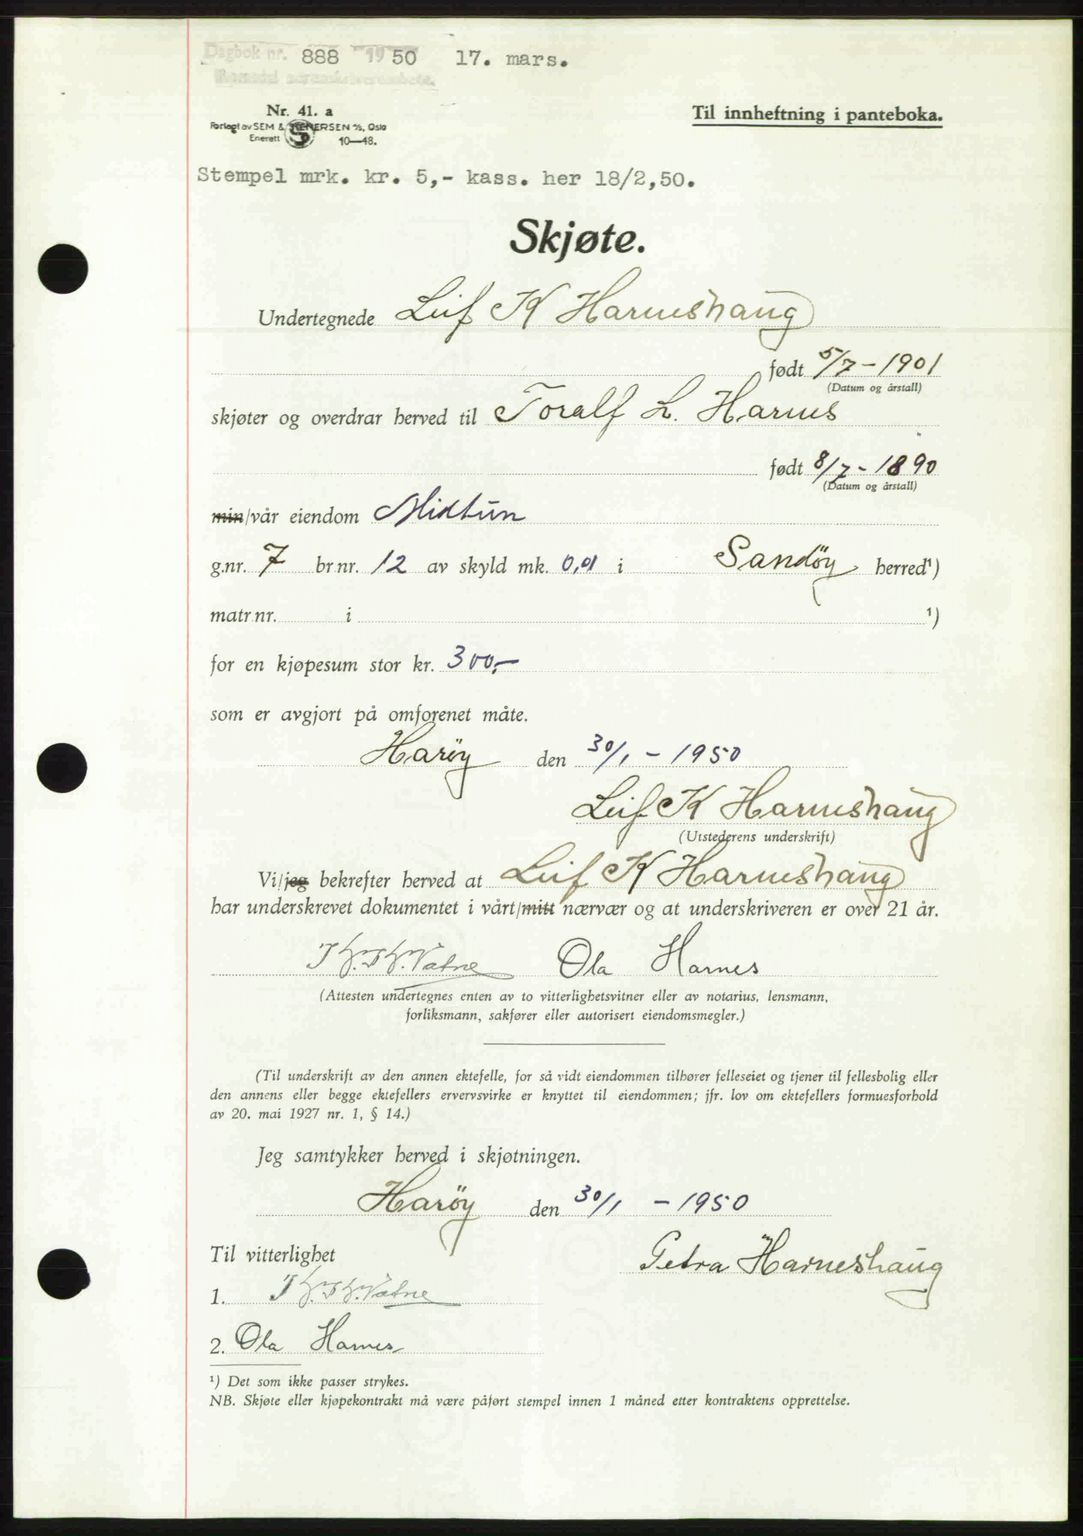 Dagbok nr. 888 1950 17. mars.
Romsdal sorenskriverembete.
Nr. 41. a
Forlagt av SEM & STENERSEN A/S, Oslo
Enerett 10—48.
Til innheftning i panteboka.
Stempel mrk. kr. 5,- kass. her 18/2,50.
Skjøte.
Undertegnede Leif K Harneshaug
født 5/7 - 1901
(Datum og årstall)
skjøter og overdrar herved til Toralf L. Harnes
født 8/7 - 1890
(Datum og årstall)
min/vår eiendom Midtun
g.nr. 7 br.nr. 12 av skyld mk. 0,01 i Sandøy herred¹)
matr.nr. i ¹)
for en kjøpesum stor kr. 300,-
som er avgjort på omforenet måte.
Harøy den 30/1 - 1950
Leif K Harneshaug
(Utstederens underskrift)
Vi/jeg bekrefter herved at Leif K Harneshaug
har underskrevet dokumentet i vårt/mitt nærvær og at underskriveren er over 21 år.
Vatne Ola Harnes
(Attesten undertegnes enten av to vitterlighetsvitner eller av notarius, lensmann,
forliksmann, sakfører eller autorisert eiendomsmegler.)
(Til underskrift av den annen ektefelle, for så vidt eiendommen tilhører felleseiet og tjener til fellesbolig eller
den annens eller begge ektefellers ervervsvirke er knyttet til eiendommen; jfr. lov om ektefellers formuesforhold
av 20. mai 1927 nr. 1, § 14.)
Jeg samtykker herved i skjøtningen.
Harøy den 30/1 - 1950
Til vitterlighet
Petra Harneshaug
1. Vatne
2. Ola Harnes
¹) Det som ikke passer strykes.
NB. Skjøte eller kjøpekontrakt må være påført stempel innen 1 måned etter kontraktens opprettelse.